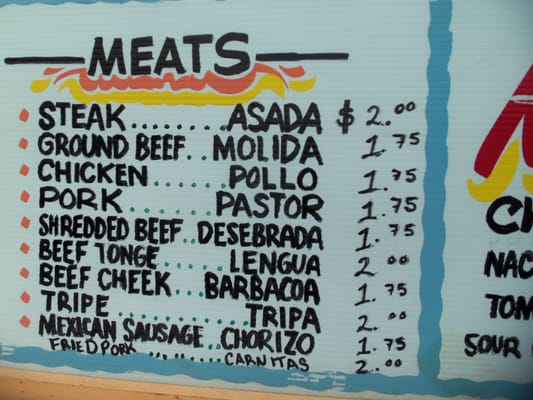 MEATS
STEAK........ASADA $ 2.00
GROUND BEEF..MOLIDA 1.75
CHICKEN........POLLO 1.75
PORK........PASTOR 1.75
SHREDDED BEEF..DESEBRADA 1.75
BEEF TONGE......LENGUA 2.00
BEEF CHEEK...BARBACOA 1.75
TRIPE..........TRIPA 2.00
MEXICAN SAUSAGE..CHORIZO 1.75
FRIED PORK......CARNITAS 2.00
SOUR